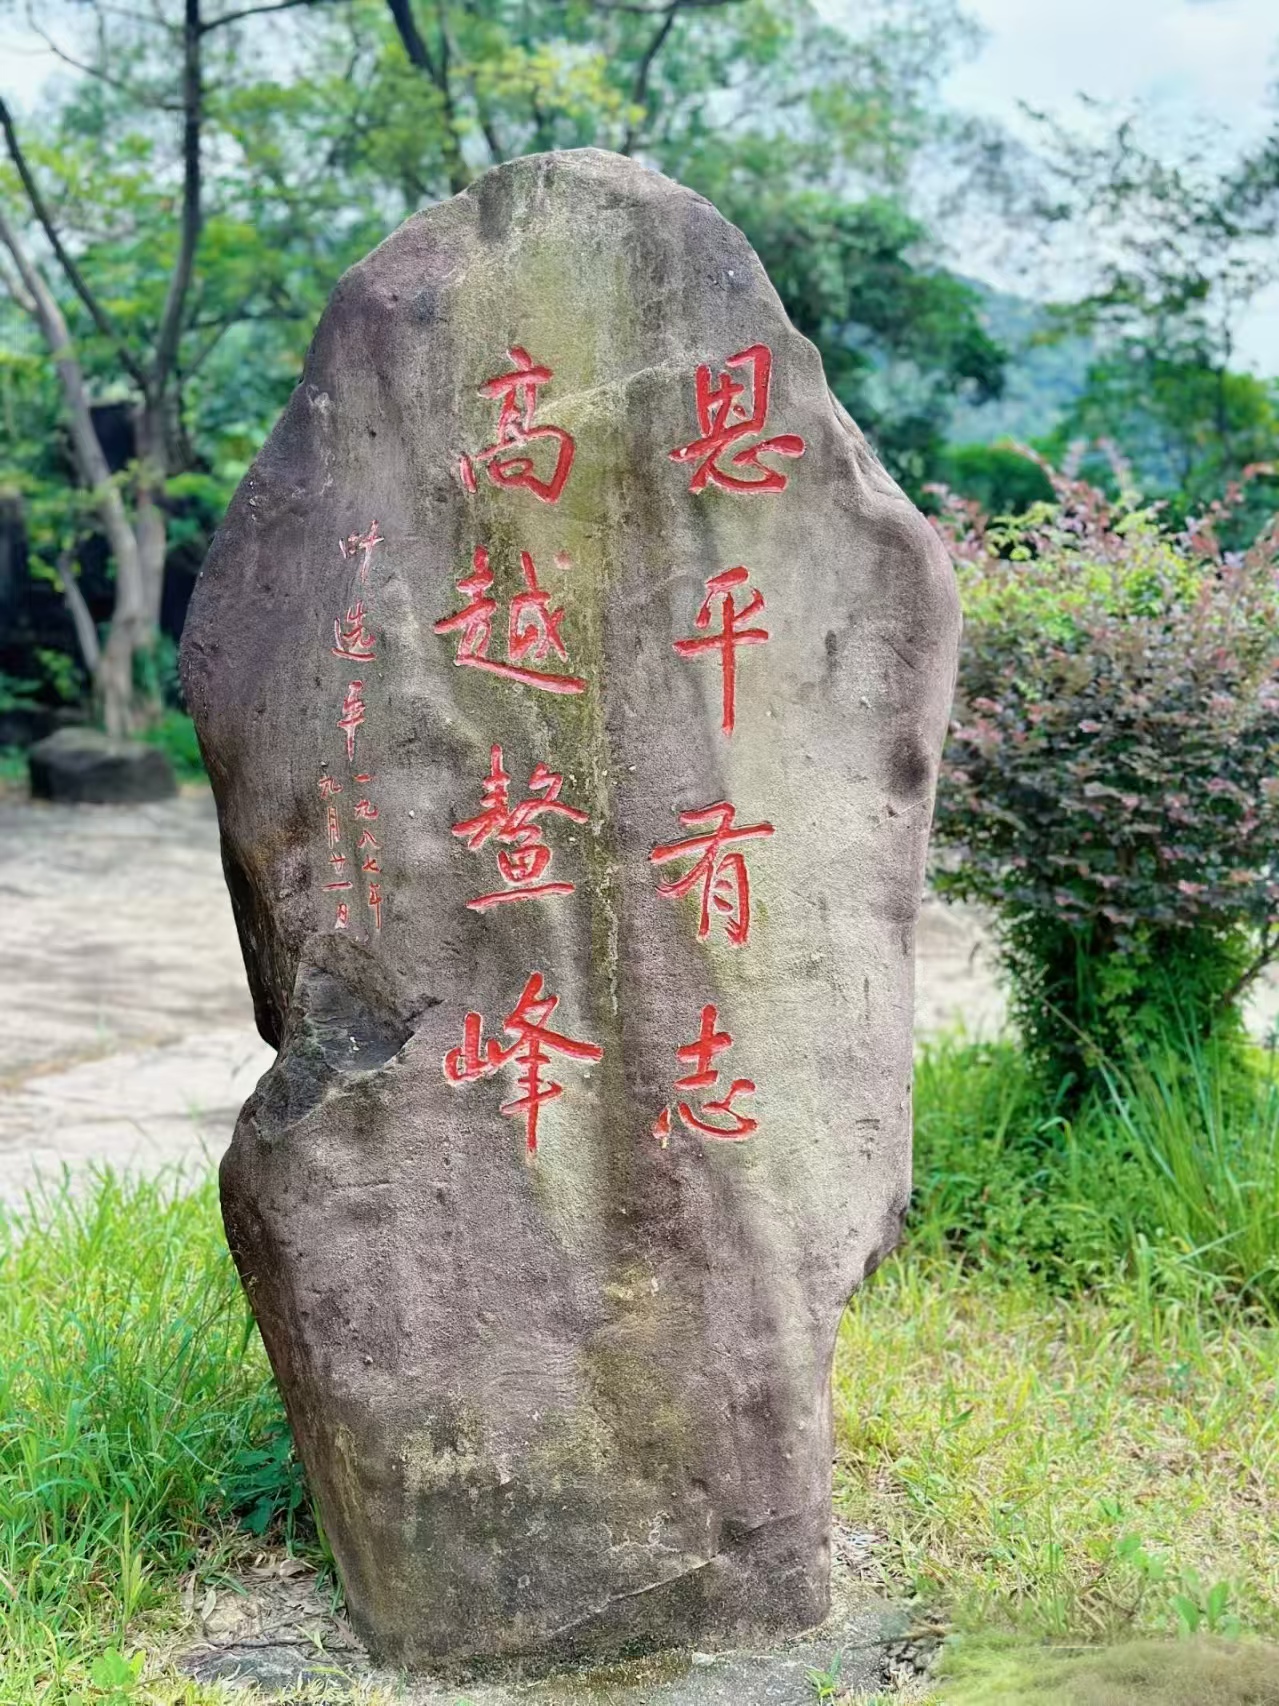 恩平有志
高越鳌峰
叶选平
一九八七年
九月廿一日